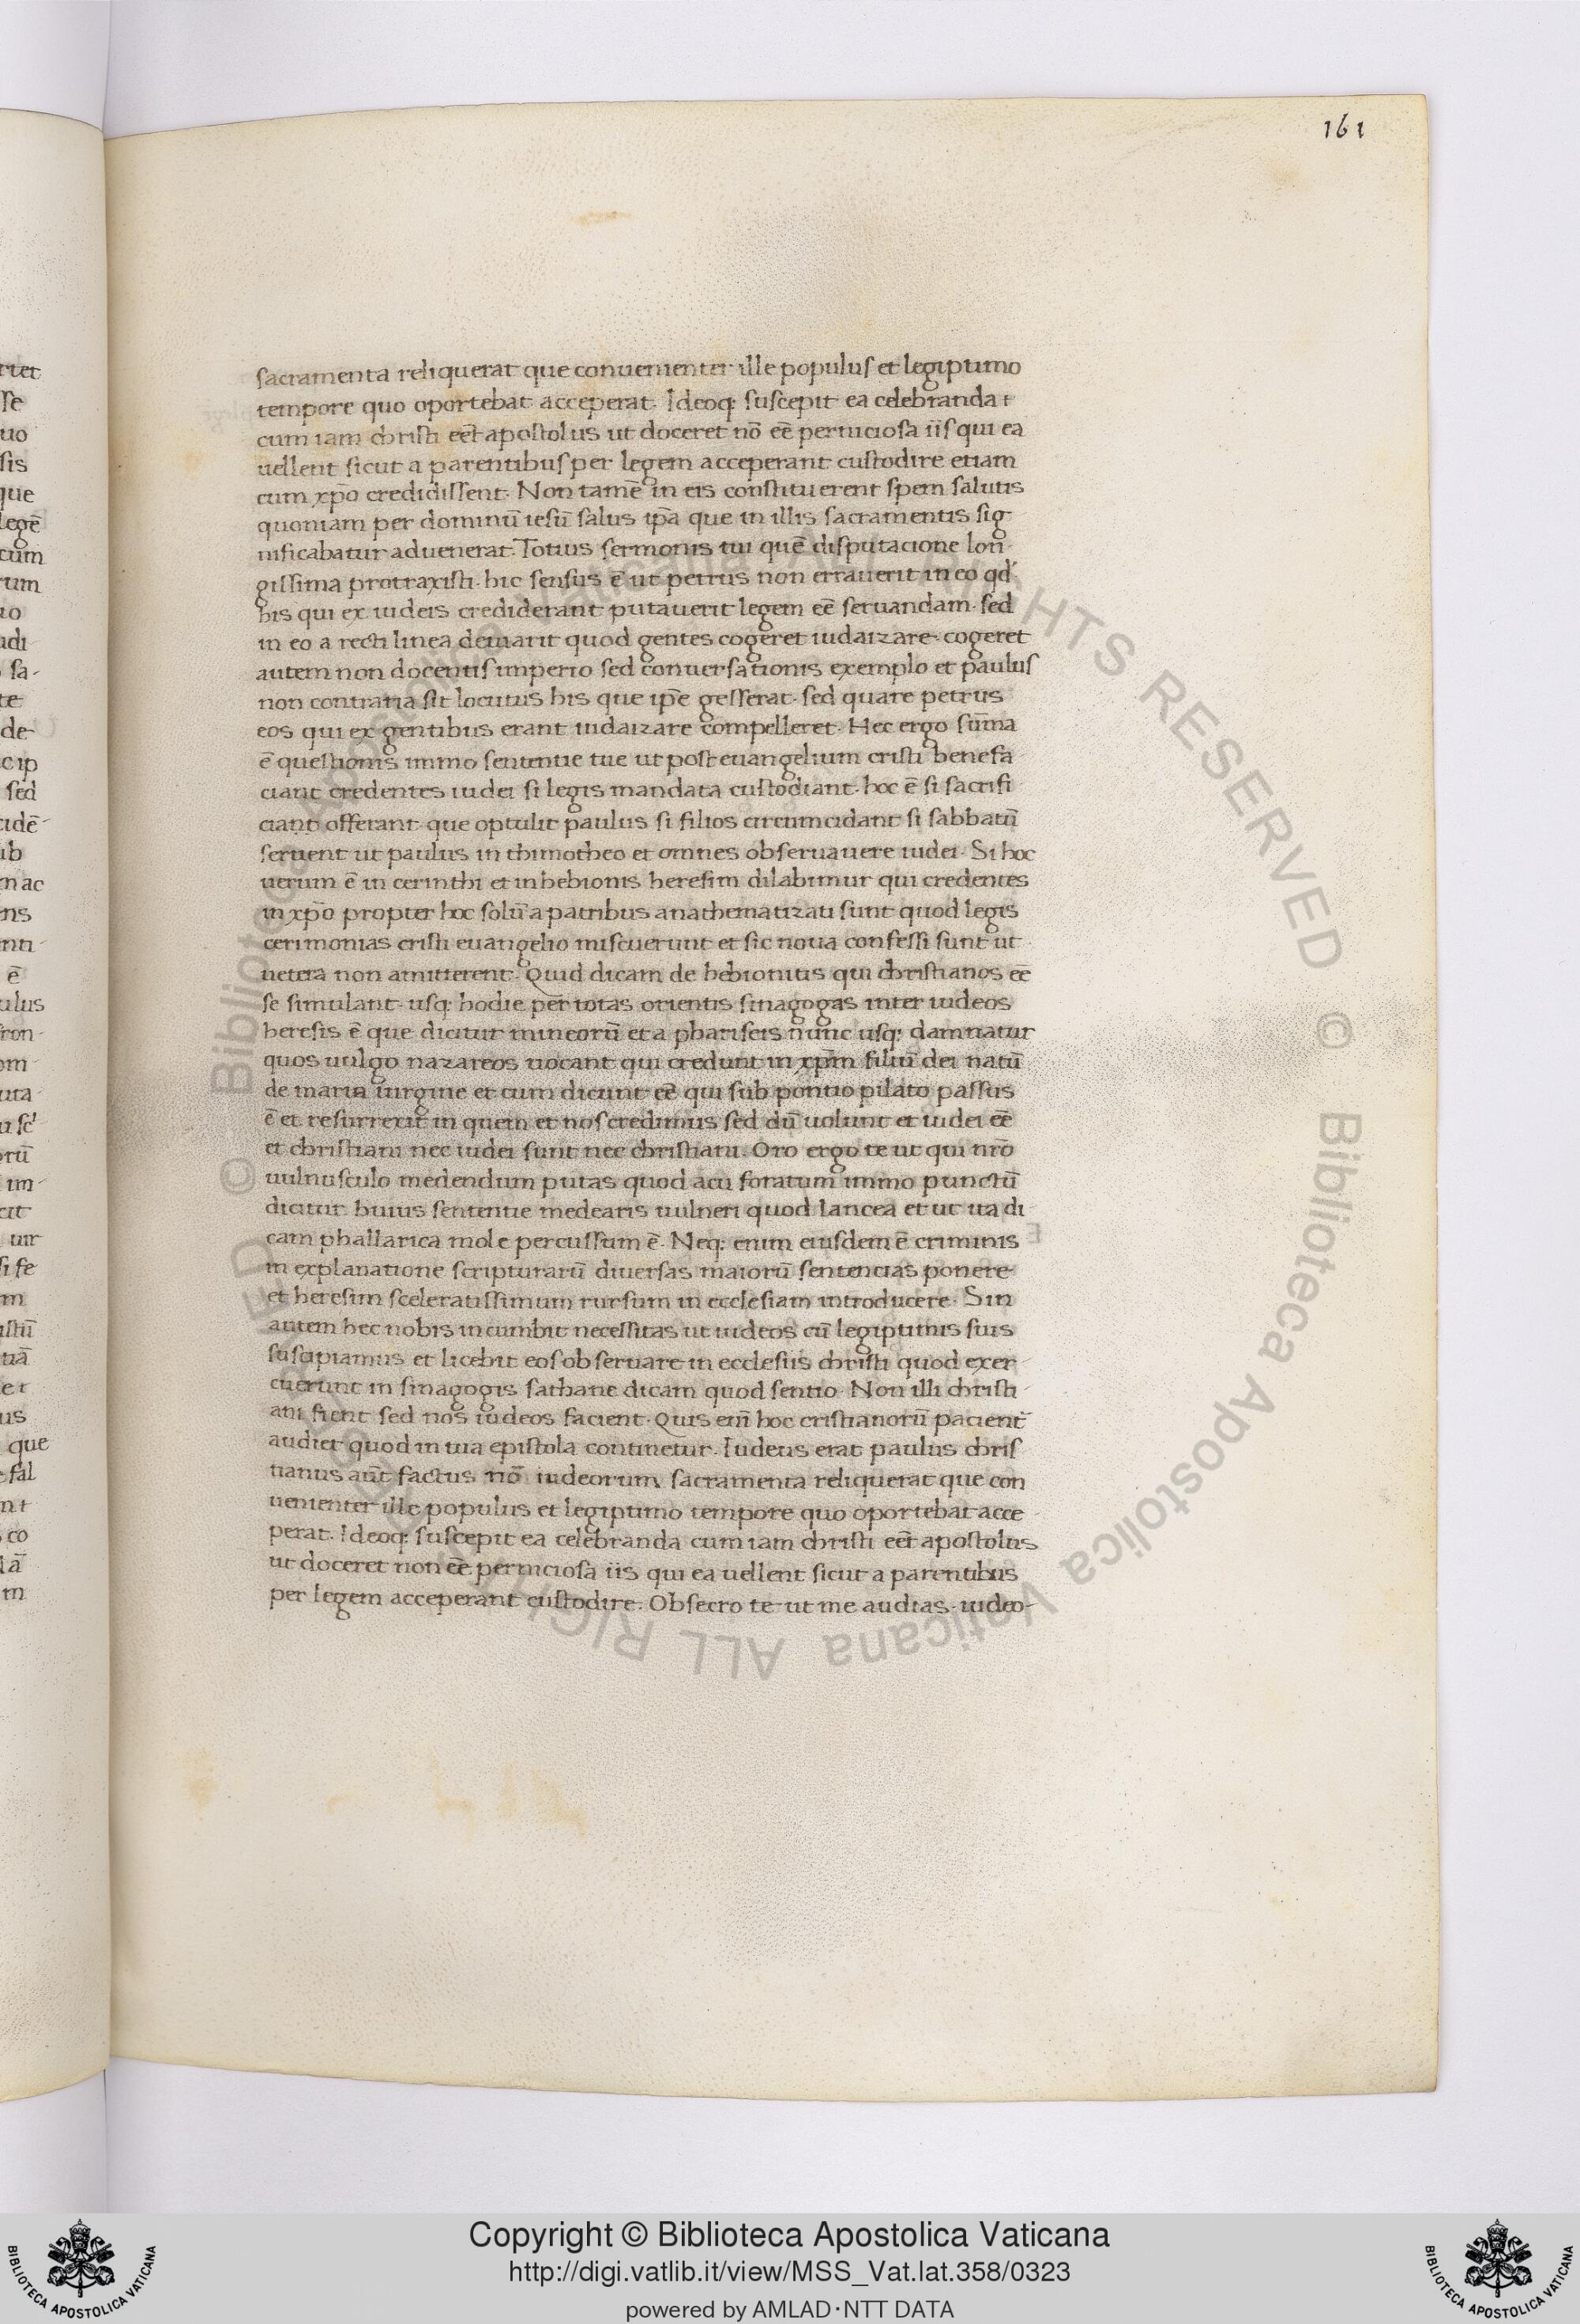 161
sacramenta reliquerat que conuenienter ille populus et legiptimo
tempore quo oportebat acceperat. Ideoq; suscepit ea celebranda
cum iam christi eēt apostolus ut doceret nō eē perniciosa iis qui ea
uellent sicut a parentibus per legem acceperant custodire etiam
cum xp̄o credidissent. Non tamē in eis constituerent spem salutis
quoniam per dominū iesū salus ip̄a que in illis sacramentis sig
nificabatur aduenerat. Totius sermonis tui quē disputacione lon
gissima protraxisti. hic sensus ē ut petrus non errauerit in eo qđ
his qui ex iudeis crediderant putauerit legem eē seruandam. sed
in eo a recti linea deuiarit quod gentes cogeret iudaizare. cogeret
autem non docentis imperio sed conuersationis exemplo et paulus
non contraria sit locutus his que ip̄e gesserat. sed quare petrus
eos qui ex gentibus erant iudaizare compelleret. Hec ergo sūma
ē questionis immo sententie tue ut post euangelium cristi bene fa
ciant credentes iudei si legis mandata custodiant. hoc ē si sacrifi
ciant offerant. que optulit paulus si filios circumcidant si sabbatū
seruent ut paulus in thimotheo et omnes obseruauere iudei. Si hoc
uerum ē in cerinthi et in hebionis heresim dilabimur qui credentes
in xp̄o propter hoc solū a patribus anathematizati sunt quod legis
cerimonias cristi euangelio miscuerunt et sic noua confessi sunt ut
uetera non amitterent. Quid dicam de hebionitis qui christianos eē
se simulant. usq; hodie per totas orientis sinagogas inter iudeos
heresis ē que dicitur mineorū et a phariseis nunc usq; damnatur
quos uulgo nazareos uocant qui credunt in xp̄m filiū dei natū
de maria uirgine et cum dicunt eē qui sub pontio pilato passus
ē et resurrexit in quem et nos credimus sed dū uolunt et iudei eē
et christiani nec iudei sunt nec christiani. Oro ergo te ut qui nr̄o
uulnusculo medendum putas quod acu foratum immo punctū
dicitur. huius sententie medearis uulneri quod lancea et ut ita di
cam phallarica mole percussum ē. Neq; enim eiusdem ē criminis
in explanatione scripturarū diuersas maiorū sentencias ponere
et heresim sceleratissimum rursum in ecclesiam introducere. Sin
autem hec nobis incumbit necessitas ut iudeos cū legiptimis suis
suscipiamus et licebit eos obseruare in ecclesiis christi quod exer
cuerunt in sinagogis sathane dicam quod sentio. Non illi christi
ani fient sed nos iudeos facient. Quis eni hoc cristianorū pacient̄
audiet quod in tua epistola continetur. Iudeus erat paulus chris
tianus aūt factus nō iudeorum sacramenta reliquerat que con
uenienter ille populus et legiptimo tempore quo oportebat acce
perat. Ideoq; suscepit ea celebranda cum iam christi eēt apostolus
ut doceret non eē perniciosa iis qui ea uellent sicut a parentibus
per legem acceperant custodire. Obsecro te ut me audias. iudeo-
© Biblioteca Apostolica Vaticana ALL RIGHTS RESERVED © Biblioteca Apostolica Vaticana ALL RIGHTS RESERVED
Copyright © Biblioteca Apostolica Vaticana
http://digi.vatlib.it/view/MSS_Vat.lat.358/0323
powered by AMLAD·NTT DATA
BIBLIOTECA APOSTOLICA VATICANA
BIBLIOTECA APOSTOLICA VATICANA